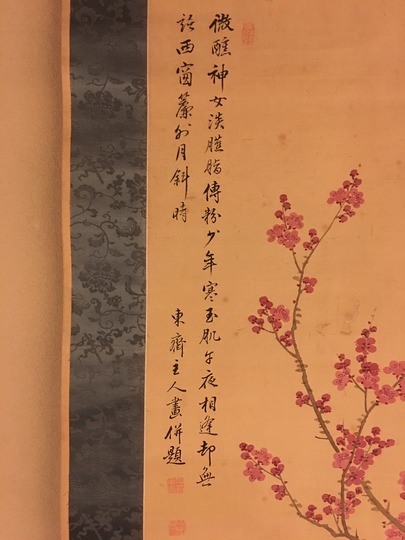 微醺神女淡臙脂傅粉少年寒玉肌午夜相逢却無
語西窗簾外月斜時
東齊主人畫併題